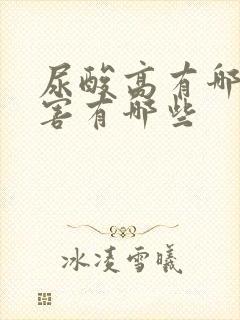 尿酸高有哪
害有哪些
冰凌雪曦